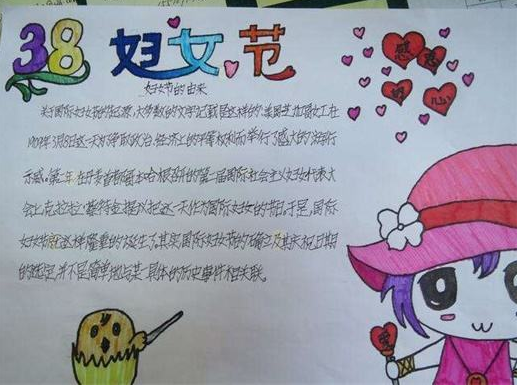 38 妇女节
感恩
的心
妇女节的由来
关于国际妇女节的起源,大多数的文字记载是这样的:美国芝加哥女工在
1909年3月8日这一天为争取政治、经济上的平等权利而举行了盛大的游行
示威。第二年,在丹麦首都哥本哈根召开的第二届国际社会主义妇女代表大
会上克拉拉·蔡特金提议把这一天作为国际妇女的节日,于是,国际
妇女节就这样隆重的诞生了其实国际妇女节的确立及其庆祝日期
的选定,并不是简单地与某一具体的历史事件相关联。
爱